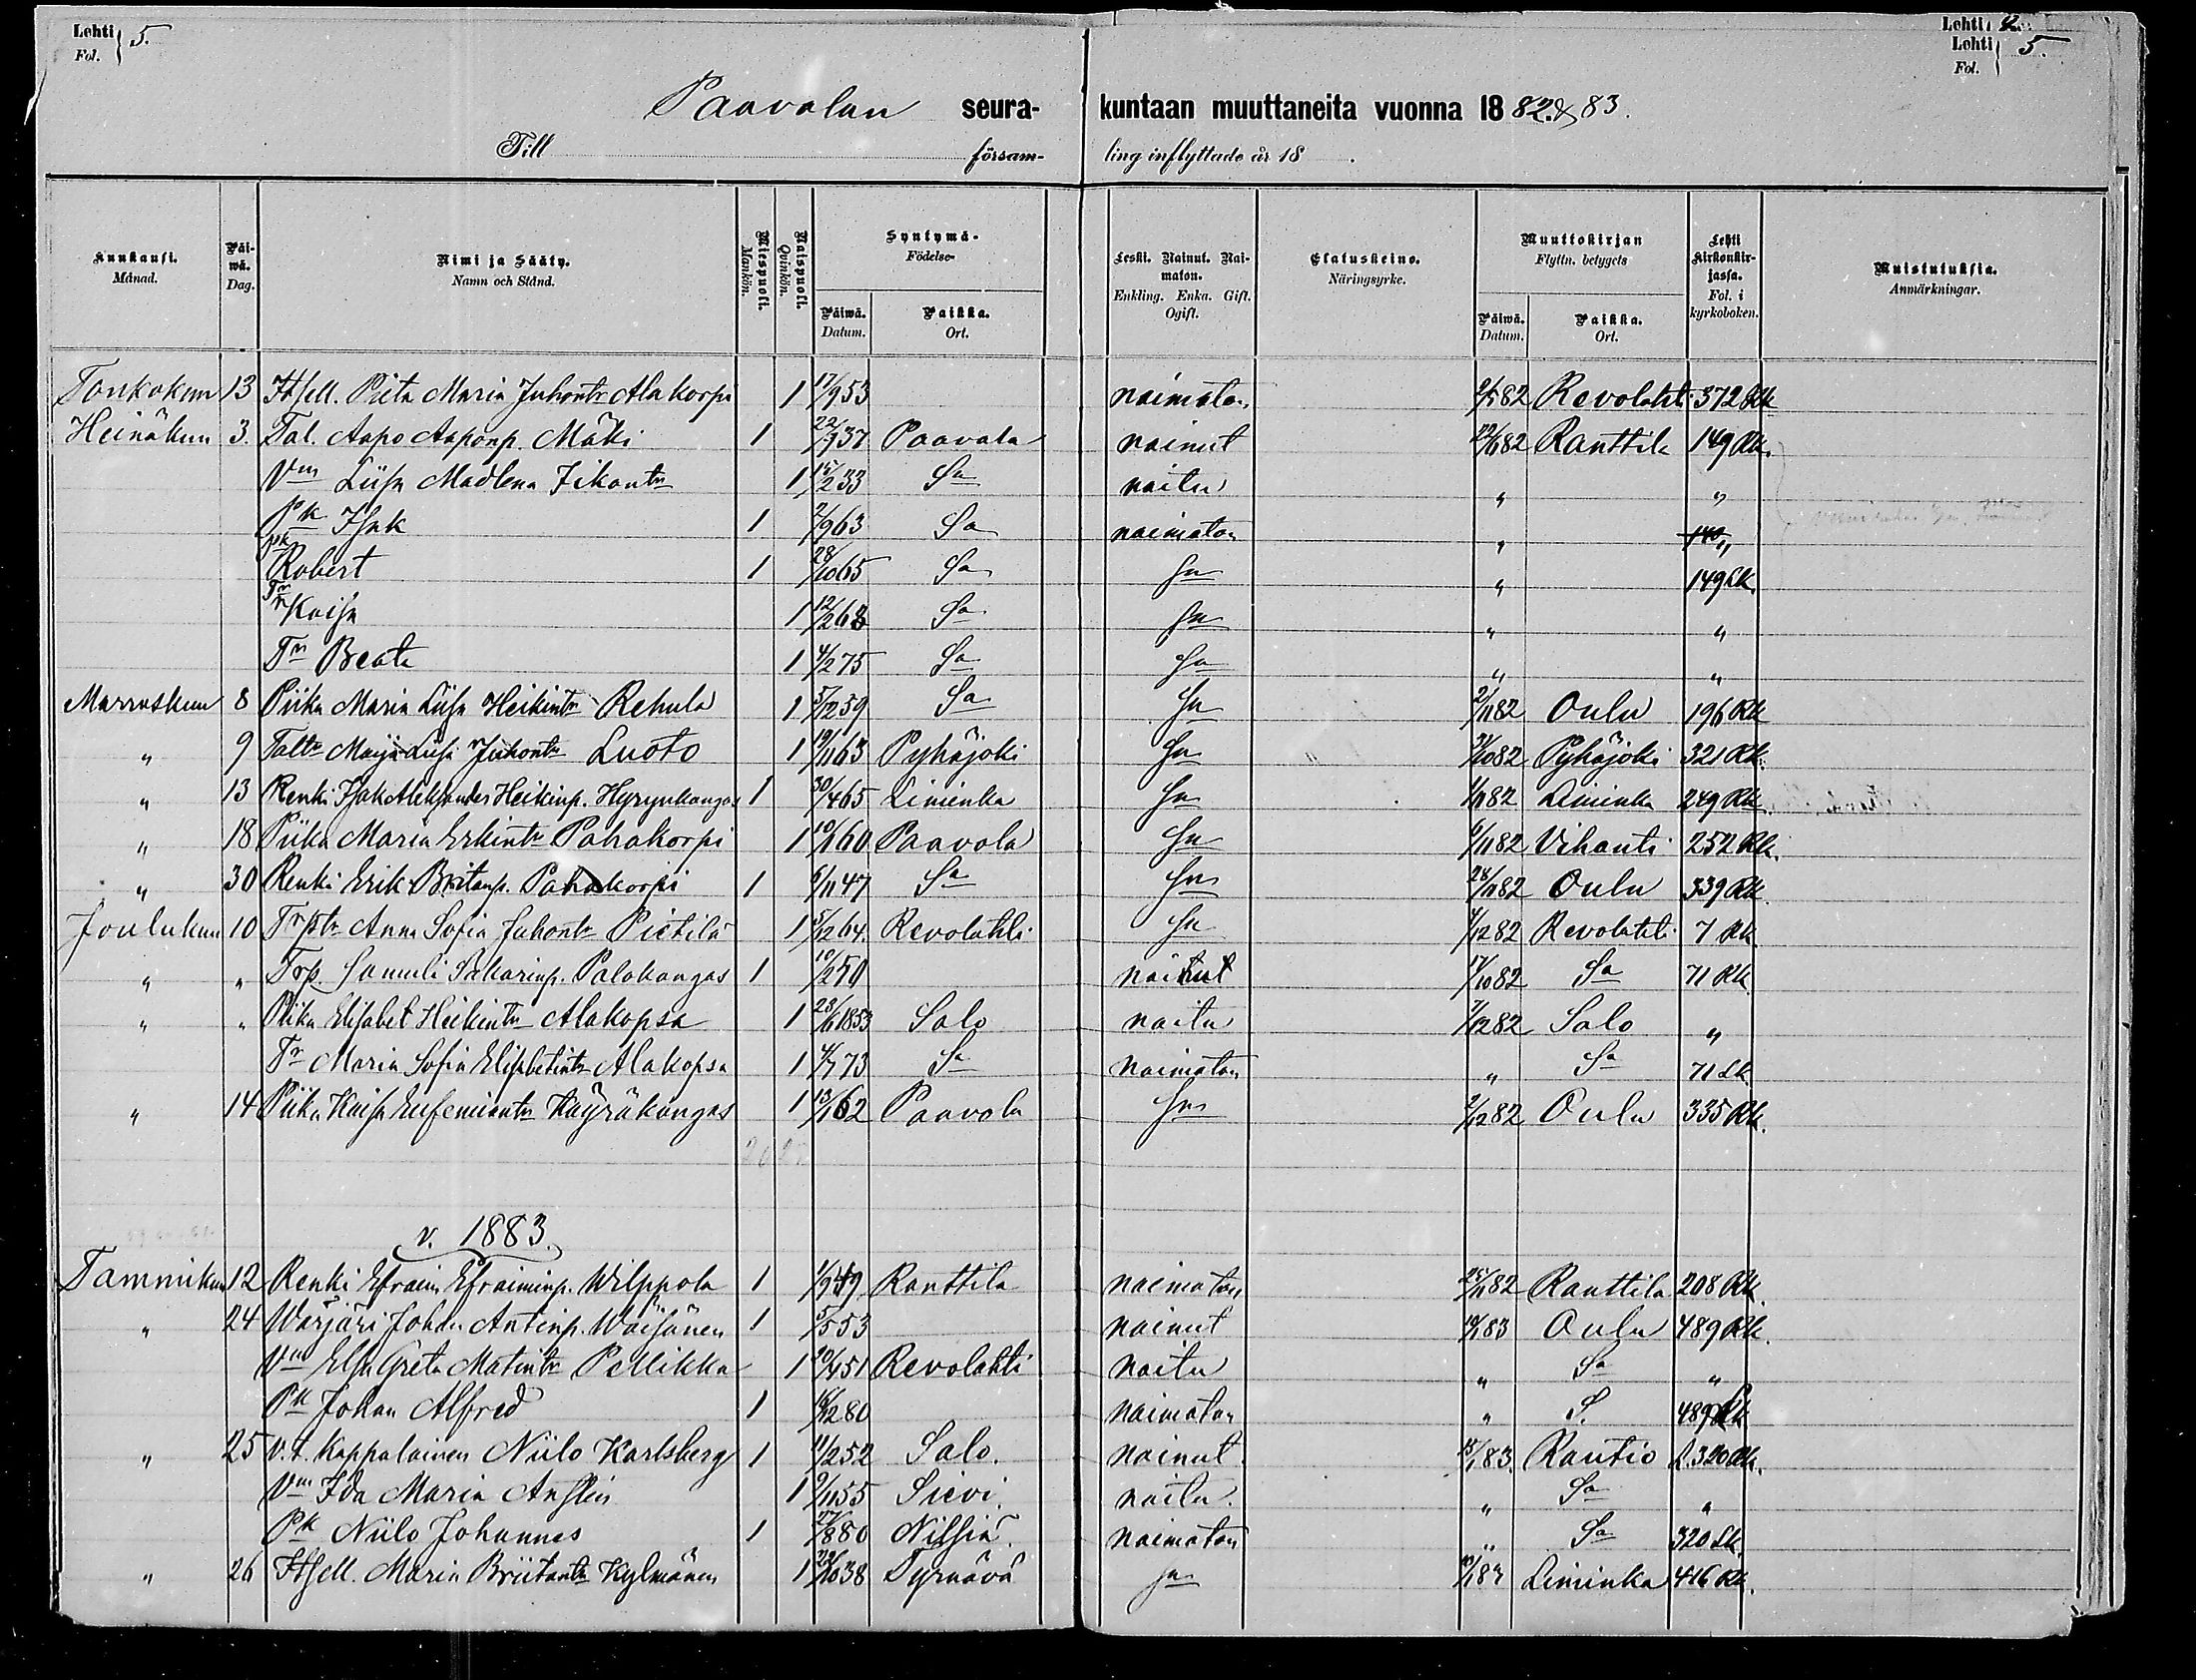 Lehti 5.
Fol.
Lehti 4.
Lehti 5.
Fol.
Paavolan seura-kuntaan muuttaneita vuonna 1882 & 83.
Till försam-ling inflyttade år 18 .
Kuukausi. Månad. Päi-wä. Dag. Nimi ja Sääty. Namn och Stånd. Miespuoli. Mankön. Naispuoli. Qvinkön. Syntymä- Födelse- Päiwä. Datum. Paikka. Ort. Leski. Nainut. Nai-maton. Enkling. Enka. Gift. Ogift. Elatuskeino. Näringsyrke. Muuttokirjan Flyttn. betygets Päiwä. Datum. Paikka. Ort. Lehti kirkonkir-jassa. Fol. i kyrkoboken. Muistutuksia. Anmärkningar.
Toukokuu 13 Itsell. Pieta Maria Juhontr Alakorpi 1 17/9 53 naimaton 82 Revolahti 372 Rk
Heinäkuu 3. Tal. Aapo Aaponp. Mäki 1 22/9 37 Paavola nainut 22/6 82 Ranttila 149 Rk.
Vm Liisa Madlena Iikantr 1 15/2 33 Sa naitu " "
Pk Isak 1 2/9 63 Sa naimaton " 149 "
pk Robert 1 28/10 65 Sa Sa " 149 Lk.
Tr Kaisa 1 12/2 68 Sa Sa " "
Tr Beata 1 4/2 75 Sa Sa " "
Marraskuu 8 Piika Maria Liisa Heikintr Rehula 1 5/12 59 Sa Sa 2/11 82 Oulu 196 Rk
" 9 Taltr Maija Liisa Juhontr Luoto 1 19/11 63 Pyhäjoki Sa 31/10 82 Pyhäjoki 321 Rk.
" 13 Renki Isak Aleksander Heikinp. Hyrynkangas 1 30/4 65 Liminka Sa 1/11 82 Liminka 249 Rk.
" 18 Piika Maria Erkintr Pahakorpi 1 10/1 60 Paavola Sa 6/11 82 Vihanti 252 Rk.
" 30 Renki Erik Britanp. Pahakorpi 1 6/11 47 Sa Sa 28/11 82 Oulu 339 Rk.
Joulukuu 10 Trptr Anna Sofia Juhontr Pietilä 1 5/12 64. Revolahti Sa 4/12 82 Revolahti 7 Rk.
" " Trp. Samuli Sakarinp. Palokangas 1 10/2 50 nainut 17/10 82 Sa 71 Rk.
" " Piika Elisabet Heikintr Alakopsa 1 23/11 1853 Salo naitu 7/12 82 Salo "
Tr Maria Sofia Elisabetintr Alakopsa 1 4/7 73 Sa naimaton " Sa 71 Lk
" 14 Piika Kaisa Eufemiantr Käyräkangas 1 13/1 62 Paavola Sa 2/12 82 Oulu 335 Rk.
v. 1883.
Tammikuu 12 Renki Efraim Efraiminp. Wilppola 1 1/9 49 Ranttila naimaton 25/11 82 Ranttila 208 Rk.
" 24 Wärjäri Johan Antinp. Wäisänen 1 5/5 53 nainut 83 Oulu 489 Rk.
Vm Elsa Greta Matintr Pellikka 1 20/4 51 Revolahti naitu " Sa "
Pk Johan Alfred 1 12 80 naimaton " S. 489 Lk
" 25 v.t. Kappalainen Niilo Karlsberg 1 11/2 52 Salo. nainut. 15/1 83. Rautio A. 320 Rk.
Vm Ida Maria Anglin 1 9/11 55 Sievi. naitu. " Sa "
Pk Niilo Johannes 1 27/8 80 Nilsiä. naimaton " Sa 320 Lk.
" 26 Itsell. Maria Briitantr Kylmänen 1 22/10 38 Tyrnävä Sa 83 Liminka 416 Rk.